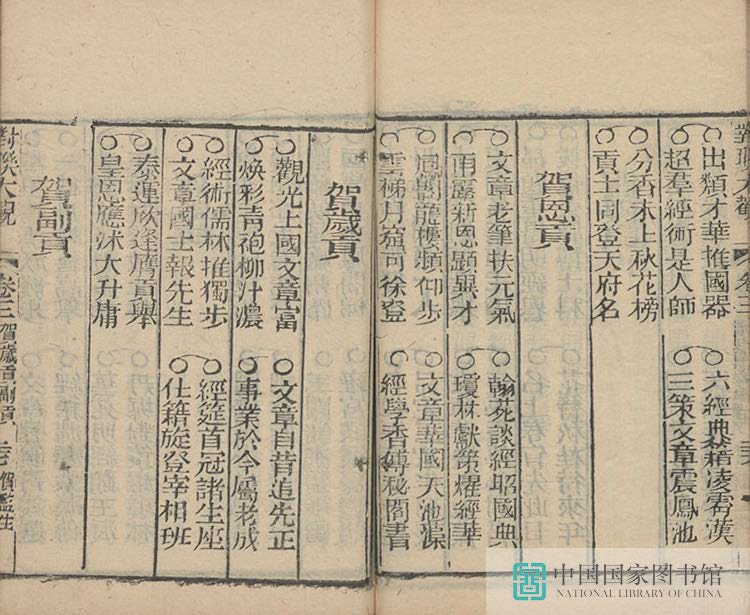 對聯大觀
卷三
出類才華推國器
超羣經術是人師
六經典籍凌霄漢
三策文章震鳳池
分香未上秋花榜
貢士同登天府名
賀恩貢
文章老筆扶元氣
雨露新恩顯異才
翰苑談經昭國典
瓊林獻策耀經華
鳳閣龍樓頻仰步
雲梯月窟可徐登
文章華國天池源
經學香傳秘閣書
賀歲貢
觀光上國文章富
煥彩青袍柳汁濃
文章自昔追先正
事業於今屬老成
經術儒林推獨步
文章國士報先生
經筵首冠諸生座
仕籍旋登宰相班
泰運欣逢膺貢舉
皇恩應沐大升庸
賀副貢
對聯大觀
卷三
賀歲貢副貢
賀監生
中国国家图书馆
NATIONAL LIBRARY OF CHINA